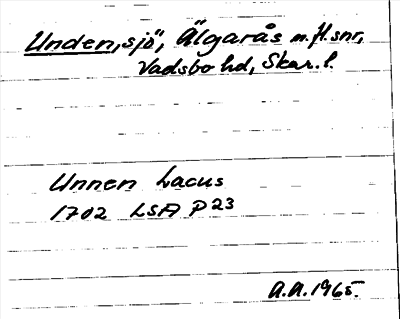 Unden, sjö, Älgarås m.fl. snr,
Vadsbo hd, Skar. l.
Unnen Lacus
1702 LSA P 23
A.A. 1965.